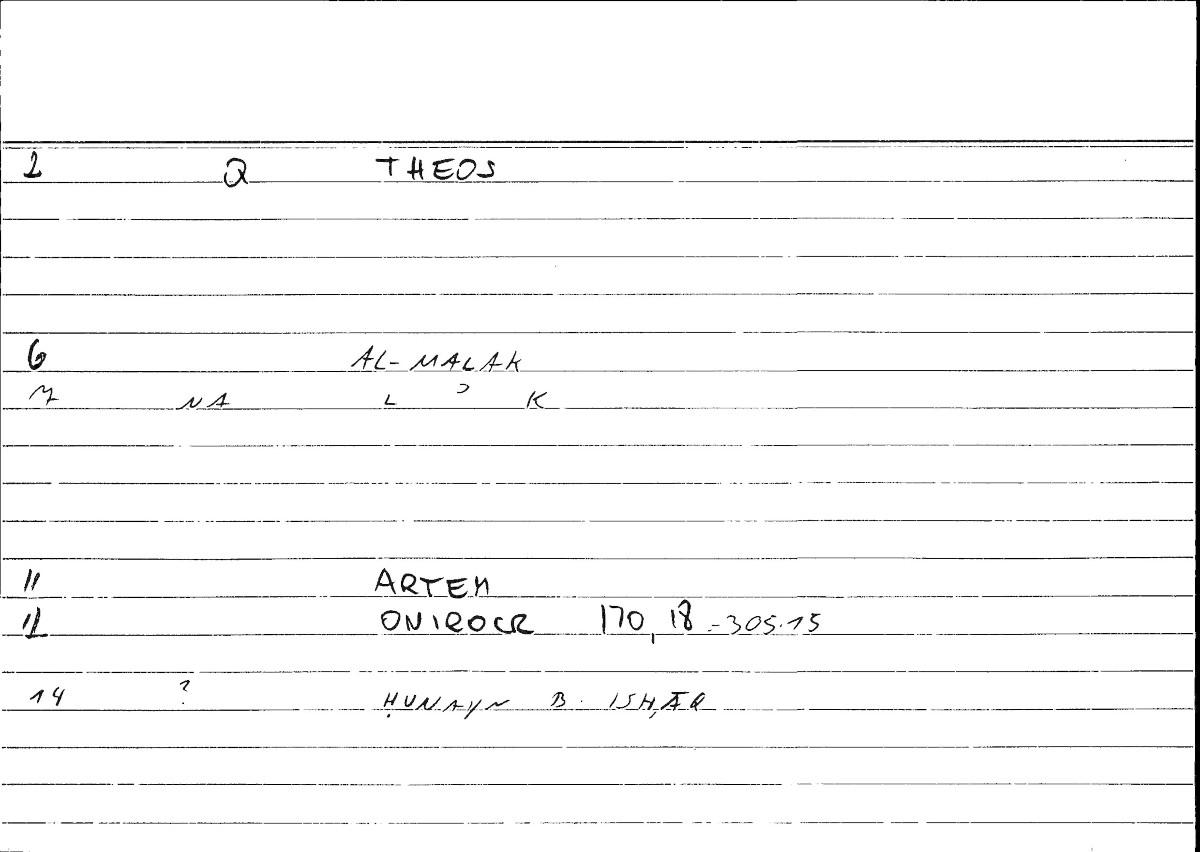 1 Q THEOS
6 AL-MALAK
7 NA L ʾ K
11 ARTEM
12 ONIROCR 170, 18 = 305.15
14 ? ḤUNAYN B. ISḤĀQ